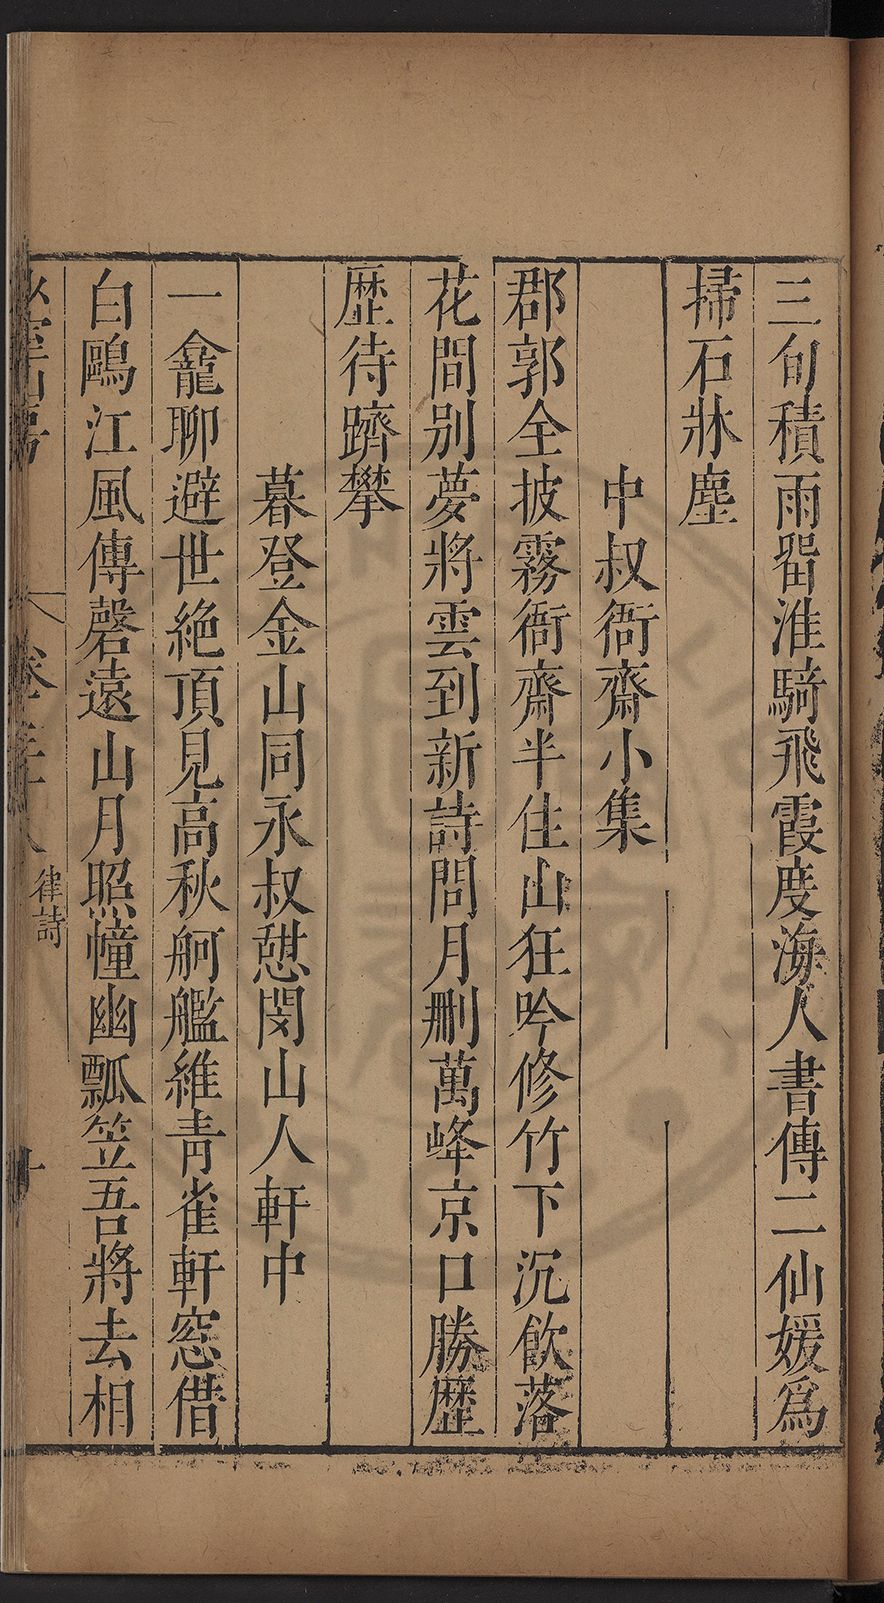 三旬積雨畱淮騎飛霞度海人書傳二仙媛爲
掃石牀塵
中叔衙齋小集
郡郭全披霧衙齋半住山狂吟修竹下沉飲落
花間别夢將雲到新詩問月删萬峰京口勝歷
歷待躋攀
暮登金山同永叔憇閔山人軒中
一龕聊避世絶頂見高秋舸艦維青雀軒窓借
白鷗江風傳磬遠山月照幢幽瓢笠吾將去相
山房
卷三十八
律詩
十